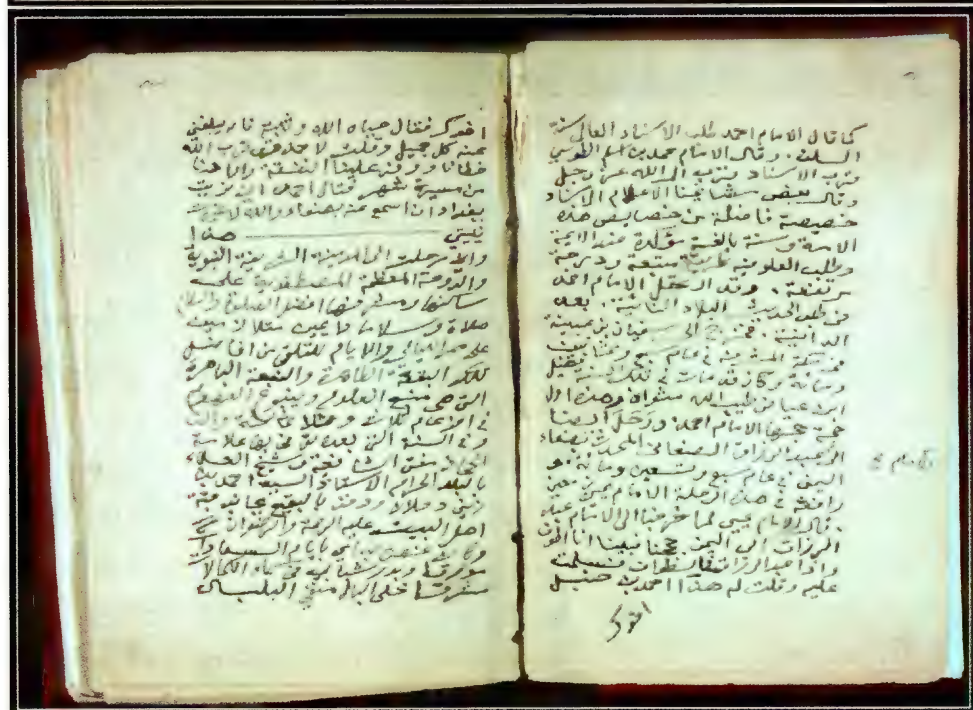 كما قال الامام احمد طلب الاسناد العالي سنة
السلف. وقال الامام محمد بن اسلم الطوسي
قرب الاسناد قرب الى الله عز وجل
وقال بعض مشايخنا الاعلام الاسناد
خصيصة فاضلة من خصايص هذه
الامة وسنة بالغة مؤكدة عند الايمة
وطلب العلو فيه متبعة ودرجة
مرتفعة. وقد ارتحل الامام احمد
في طلب الحديث البلاد النائية. بعد
الدانية. فخرج الى سفيان بن عيينة
في مكة المشرفة في عام سبع وثمانين
ومائة وكان قد مات في تلك السنة فضيل
ابن عياض طيب الله مثواه وهذه اول
حجة حجها الامام احمد. ورحل ايضا
الى عبد الرزاق الصنعاني المحدث بصنعاء
اليمن في عام سبع وتسعين ومائة. و
رافقه في هذه الرحلة الامام يحيى بن معين
. قال الامام يحيى لما خرجنا الى الامام عبد
الرزاق الى اليمن حججنا فبينا انا اطوف
واذا عبد الرزاق في الطواف فسلمت
عليه وقلت له هذا احمد بن حنبل
اخوك
اخوك فقال حياه الله وثبته فانه يبلغني
عنه كل جميل وقلت لاحمد قد قرب الله
خطانا ووفر علينا النفقة وراحنا
من مسيرة شهر فقال احمد اني نويت
ببغداد ان اسمع منه بصنعاء والله لا غيرت
نيتي هذا
والى رحلت الى المدينة الشريفة النبوية
والدوحة المعظمة المصطفوية على
ساكنها ومشرفها افضل الصلاة والسلام
صلاة وسلاما دايمين متلازمين
على ممر الليالي والايام للتلقي من افاضل
تلك البقعة الطاهرة والتبعة الباهرة
التي هي منبع العلوم وينبوع الفهوم
في اخر عام ثلاث
وفي السنة التي بعده توفي بها علامة
الحجاز مفتي الشافعية وشيخ العلماء
بالبلد الحرام الاستاذ السيد احمد بن
زيني دحلان ودفن بالبقيع بجانب قبة
اهل البيت عليهم الرحمة والرضوان
وكان غصن شبابي بايام السعادة
مورقا وبدر شبابي في سماء الكمال
مشرقا خلي البال من البلبال